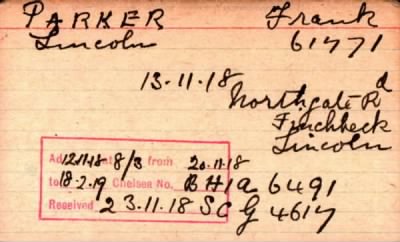 PARKER Frank
Lincoln 61771
13.11.18
Northgate Rd
Pinchbeck
Lincoln
Ad 12.11.18 at 8/3 from 20.11.18
to 18.2.19 Chelsea No. BH1a 6491
Received 23.11.18 SC G 4617